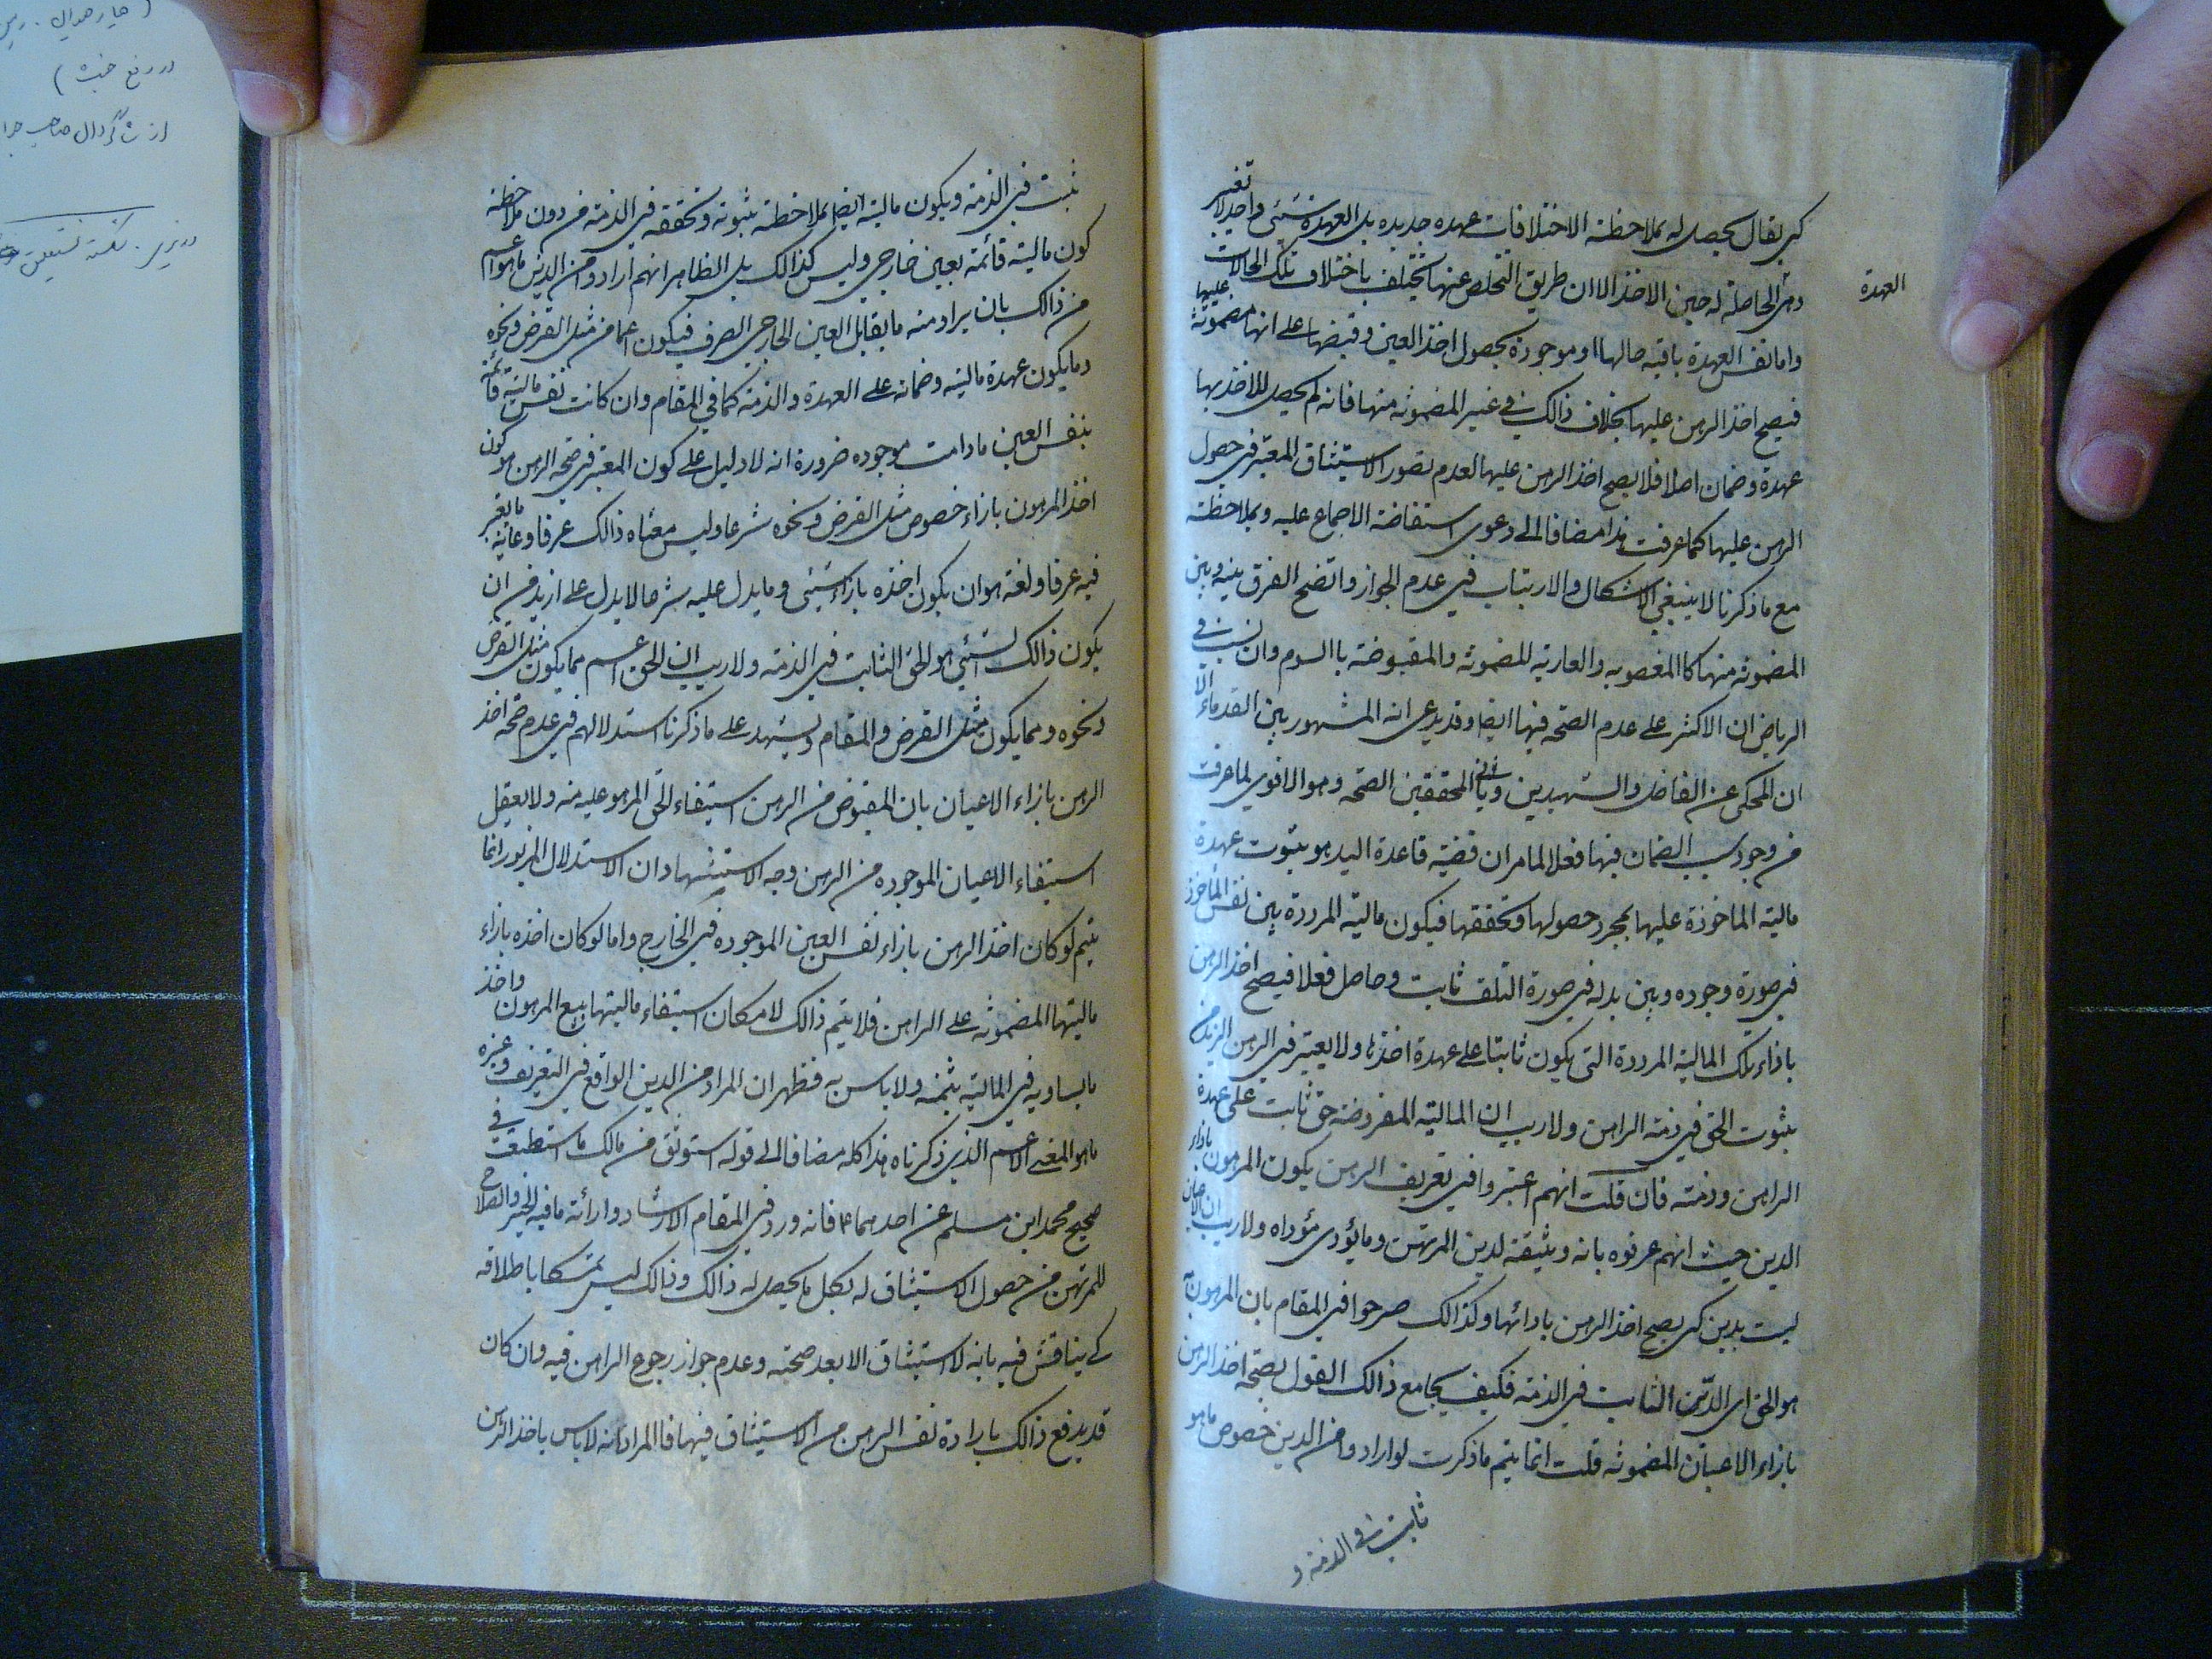 كي يقال يحصل له بملاحظة الاختلافات عهدة جديدة بل العهدة شيئي واحد لا تغير
العهدة
وهى الحاصلة له حين الاخذ الا ان طريق التخلص عنها يختلف باختلاف تلك الحالات
واما نفس العهدة باقية حالها او موجودة بحصول اخذ العين وقبضها على انها مضمونة عليها
فيصح اخذ الرهن عليها بخلاف ذالك في غير المضمونة منها فانه لم يحصل للاخذ بها
عهدة وضمان اصلا فلا يصح اخذ الرهن عليها لعدم تصور الاستيثاق المعتبر في حصول
الرهن عليها كما عرفت هذا مضافا الى دعوى استفاضة الاجماع عليه وبملاحظة
مع ما ذكرنا لا ينبغي الاشكال والارتياب في عدم الجواز واتضح الفرق بينه وبين
المضمونة منها كا المغصوبه والعارية المضمونة والمقبوضة باالسوم وان نسب في
الرياض ان الاكثر على عدم الصحة فيها ايضا وقد يدعى انه المشهور بين القدماء الا
ان المحكى عن الفاضل والشهيدين وثاني المحققين الصحة وهو الاقوى لما عرفت
من وجود سبب الضمان فيها فعلا لما مر ان قضية قاعدة اليد هو ثبوت عهدة
مالية الماخوذة عليها بمجرد حصولها وتحققها فيكون مالية المرددة بين نفس المأخوذ
في صورة وجوده وبين بدله في صورة التلف ثابت وحاصل فعلا فيصح اخذ الرهن
باذاء تلك المالية المرددة التى يكون ثابتا على عهدة اخذها ولا يعتبر في الرهن ازيد من
ثبوت الحق في ذمة الراهن ولا ريب ان المالية المفروضة حق ثابت على عهدة
الراهن وذمته فان قلت انهم اعتبروا في تعريف الرهن يكون المرهون باذاء
الدين حيث انهم عرفوه بانه وثيقة لدين المرتهن وما يؤدى مؤداه ولا ريب ان الاعيان
ليست بدين كى يصح اخذ الرهن باذائها وكذالك صرحوا في المقام بان المرهون به
هو الحق اى الدّين الثابت في الذمه فكيف يجامع ذالك القول بصحة اخذ الرهن
بازاء الاعيان المضمونه قلت انما يتم ما ذكرت لو ارادوا من الدين خصوص ما هو
ثابت في الذمة و
ثبت في الذمة ويكون مالية ايضا بملاحظة ثبوته وتحققه في الذمة من دون ملاحظة
كون مالية قائمة بعين خارجي وليس كذالك بل الظاهر انهم ارادوا من الدين ما هو اعم
من ذالك بان يراد منه ما يقابل العين الخارجي الصرف فيكون اعما من مثل القرض ونحوه
وما يكون عهدة مالية وضمانه على العهدة والذمة كما في المقام وان كانت نفس مالية قائمة
بنفس العين ما دامت موجوده ضرورة انه لا دليل على كون المعتبر في صحة الرهن هو كون
اخذ المرهون بازاء خصوص مثل القرض ونحوه شرعا وليس معناه ذالك عرفا وغاية ما يعتبر
فيه عرفا ولغة هو ان يكون اخذه بازاء شيئى وما يدل عليه شرعا لا يدل على ازيد من ان
يكون ذالك الشيئى هو الحق الثابت في الذمة ولا ريب ان الحق اعم مما يكون مثل القرض
ونحوه ومما يكون مثل القرض والمقام ويشهد على ما ذكرنا استدلالهم في عدم صحة اخذ
الرهن بازاء الاعيان بان المقبوض من الرهن استيفاء الحق المرهو عليه منه ولا يعقل
استيفاء الاعيان الموجوده من الرهن وجه الاستشهاد ان الاستدلال المزبور انما
يتم لو كان اخذ الرهن بازاء نفس العين الموجوده في الخارج واما لو كان اخذه بازاء
ماليتها المضمونة على الراهن فلا يتم ذالك لامكان استيفاء ماليتها ببيع المرهون واخذ
ما يساويه في المالية بثمنه ولا باس به فظهر ان المراد من الدين الواقع في التعريف وغيره
ما هو المعنى الاعم الذي ذكرناه هذا كله مضافا الى قوله استوثق من مالك ما استطعت في
صحيح محمد ابن مسلم عن احدهما ع فانه ورد في المقام الارشاد وارائة ما فيه الخير والصلاح
للمرتهن من حصول الاستيثاق له بكل ما يحصل له ذالك وذالك ليس تمسكا باطلاقه
كے يناقش فيه بانه لا استيثاق الا بعد صحته وعدم جواز رجوع الراهن فيه وان كان
قد يدفع ذالك بارادة نفس الرهن من الاستيثاق فيها فاالمراد انه لا باس باخذ الرهن